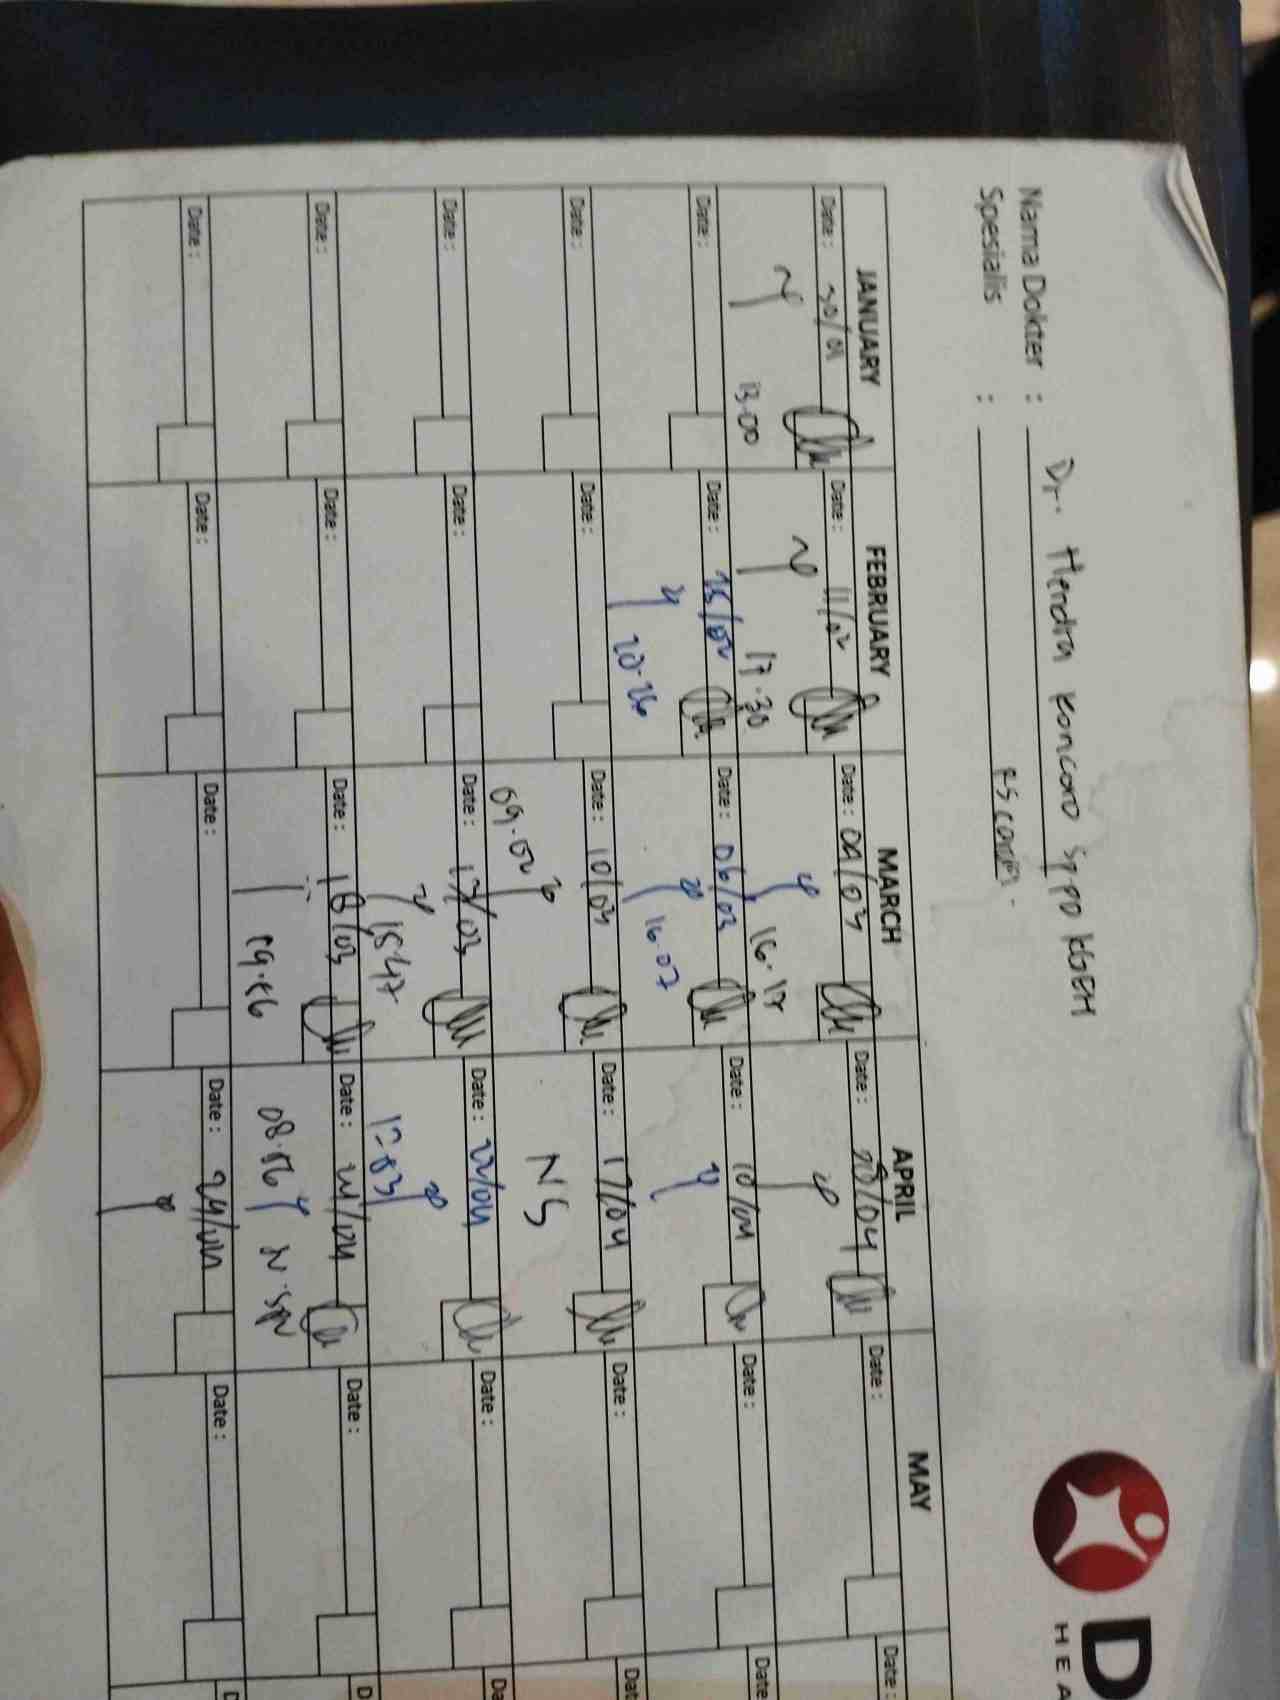 Nama Dokter : Dr. Hendra Koncoro SpPD KGEH
Spesialis :
D
HEA
JANUARY FEBRUARY MARCH APRIL MAY
Date : 30/01 Date : 11/02 Date : 04/03 Date : 08/04 Date : Date :
13.00 17.30 16.17
Date : Date : 25/02 Date : 06/03 Date : 10/04 Date : Date
20.26 16.07
Date : Date : Date : 10/03 Date : 17/04 Date : Dat
09.02 NS
Date : Date : Date : 17/03 Date : 22/04 Date : Da
15.47 17.03
Date : Date : Date : 18/03 Date : Date : D
19.56 08.56
Date : Date : Date : Date : 24/04 Date : D